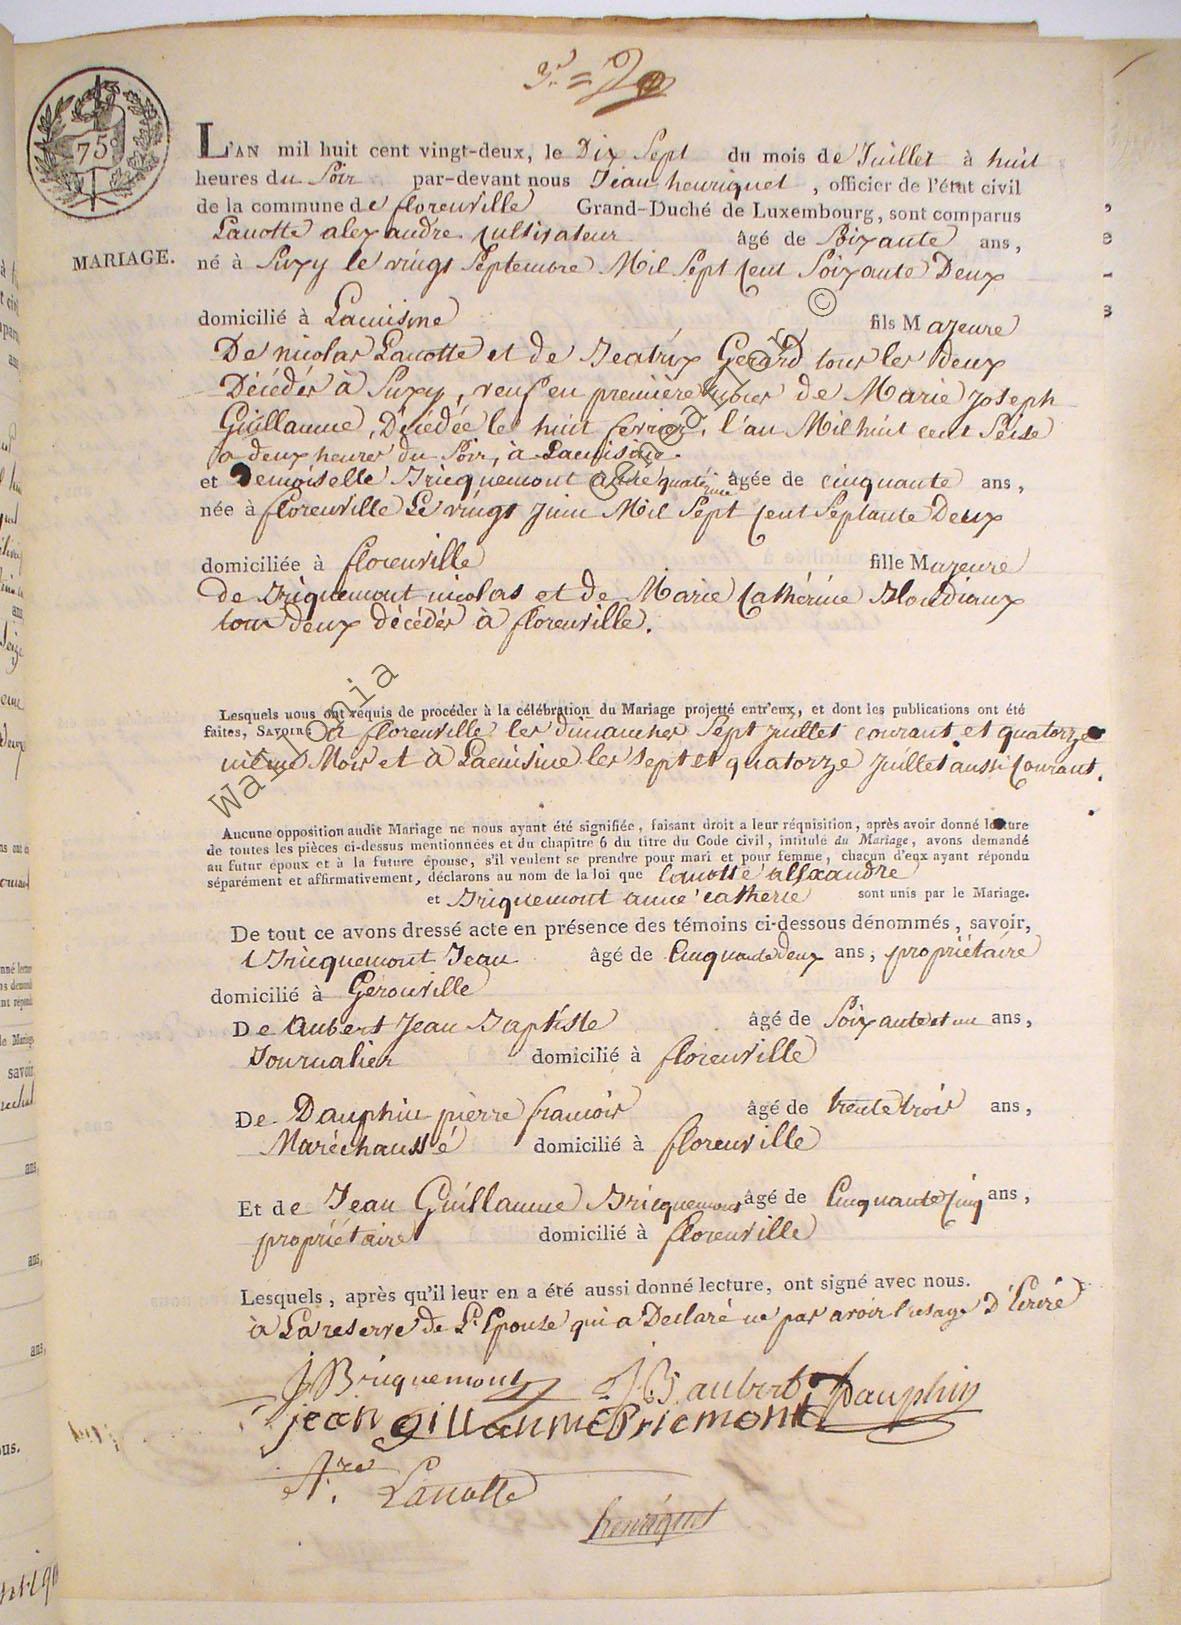 75c
L'AN mil huit cent vingt-deux, le Dix Sept du mois de Juillet à huit
heures du Soir par-devant nous Jean henriquet, officier de l'état civil
de la commune de florenville Grand-Duché de Luxembourg, sont comparus
Lanotte alexandre Cultivateur âgé de Soixante ans,
MARIAGE.
né à Suxy le vingt Septembre Mil Sept Cent Soixante Deux
domicilié à Lacuisine fils Majeure
De nicolas Lanotte et de Beatrix Gerard tous les deux
Décédés à Suxy, veuf en première noces de Marie Joseph
Guillaume, Décédée le huit fevrier, l'an Mil huit cent Seise
a deux heures du Soir, à Lacuisine.
et Demoiselle Bricquemont anne catérine âgée de cinquante ans,
née à florenville Le vingt Juin Mil Sept Cent Septante Deux
domiciliée à florenville fille Majeure
de Briquemont nicolas et de Marie Cathérine Blondiaux
tous deux décédés à florenville.
Lesquels nous ont requis de procéder à la célébration du Mariage projetté entr'eux, et dont les publications ont été
faites, SAVOIR: à florenville les dimanches Sept juillet courant et quatorze
même Mois et à Lacuisine les sept et quatorze juillet aussi Courant.
Aucune opposition audit Mariage ne nous ayant été signifiée, faisant droit a leur réquisition, après avoir donné lecture
de toutes les pièces ci-dessus mentionnées et du chapitre 6 du titre du Code civil, intitulé du Mariage, avons demandé
au futur époux et à la future épouse, s'il veulent se prendre pour mari et pour femme, chacun d'eux ayant répondu
séparément et affirmativement, déclarons au nom de la loi que Lanotte alexandre
et Briquemont anne catherie sont unis par le Mariage.
De tout ce avons dressé acte en présence des témoins ci-dessous dénommés, savoir,
Bricquemont Jean âgé de Cinquante deux ans, propriétaire
domicilié à Gerouville
De Aubert Jean Baptiste âgé de Soixante et un ans,
Journalier domicilié à florenville
De Dauphin pierre francois âgé de trente trois ans,
Maréchaussé domicilié à florenville
Et de Jean Guillaume Bricquemont âgé de Cinquante Cinq ans,
propriétaire domicilié à florenville
Lesquels, après qu'il leur en a été aussi donné lecture, ont signé avec nous.
à La reserve de L'Epouse qui a Declaré ne pas avoir l'usage D'Ecriré
J Briquemont J B aubert Dauphin
jean gillaume Briemont
A.re Lanotte
henriquet
Wallonia Genealogic ©